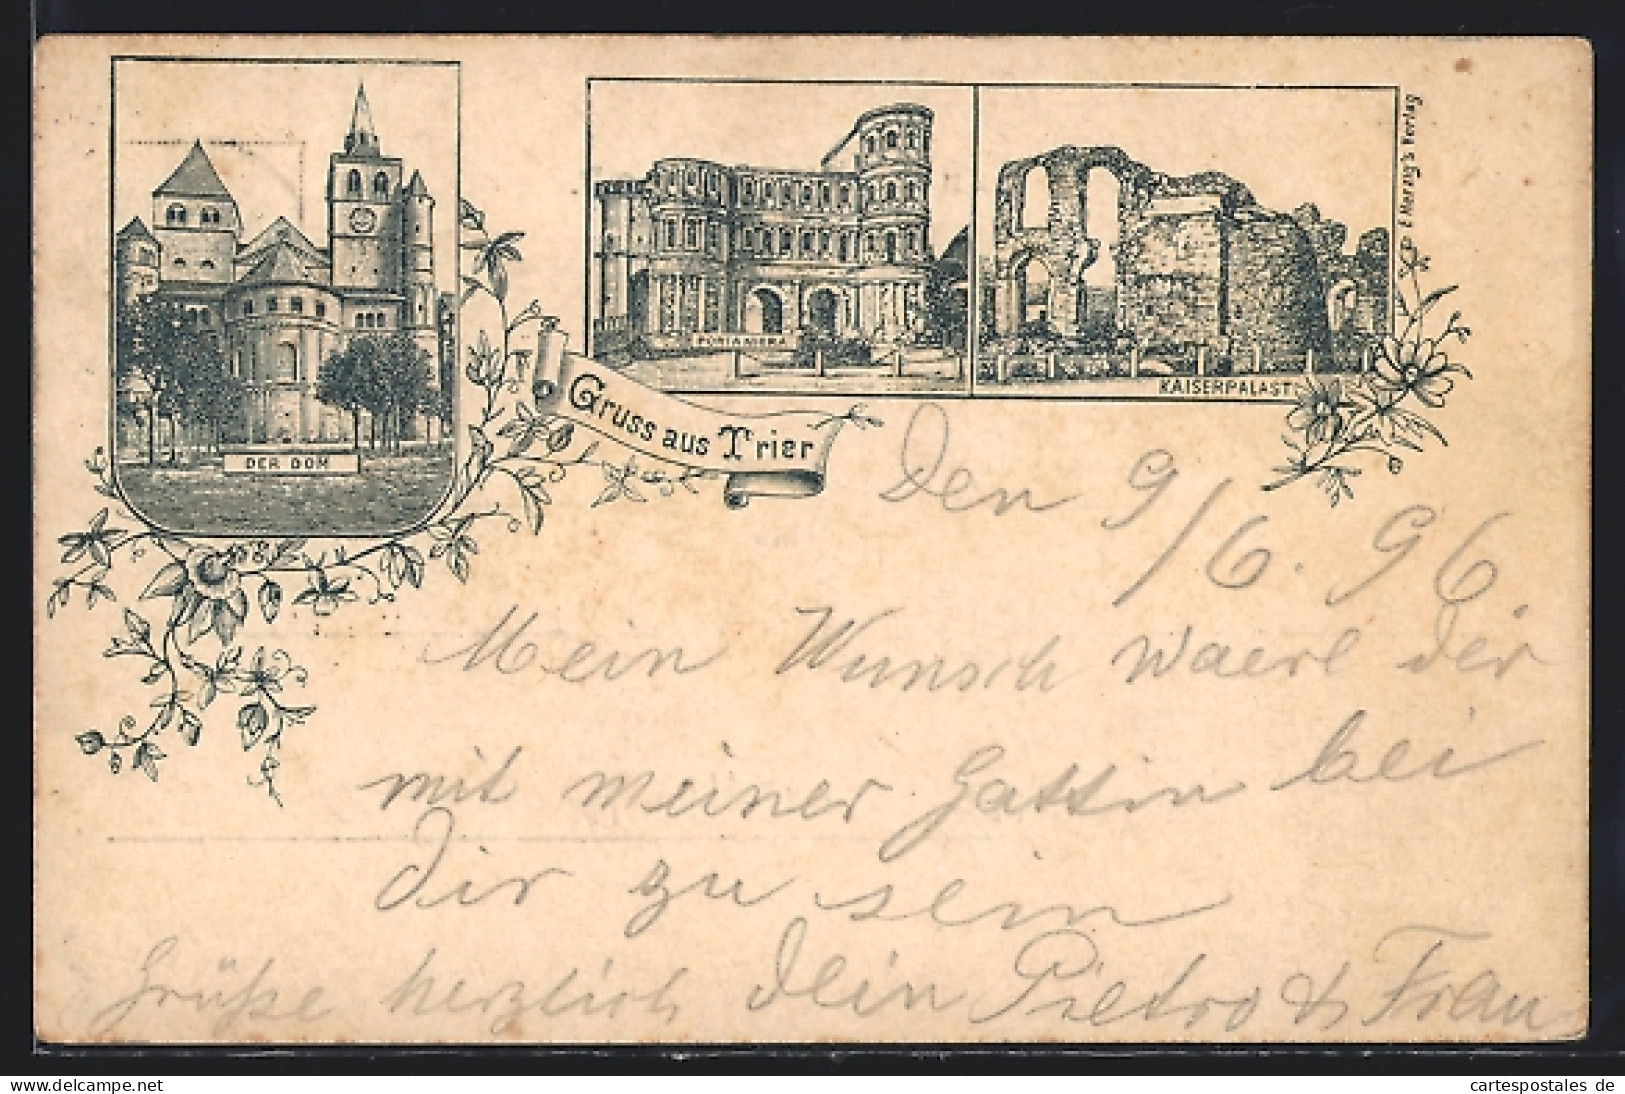 DER DOM
PORTA NIGRA
KAISERPALAST
L. Herzig's Verlag
Gruss aus Trier
Den 9/6. 96.
Mein Wunsch waere der
mit meiner Gattin bei
Dir zu sein
Grüße herzlich Dein Pietro & Frau
cartespostales de
www.cartespostales.eu